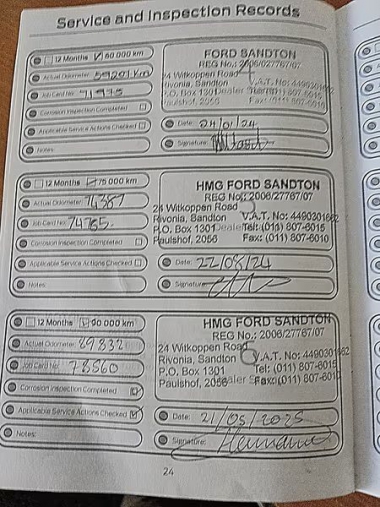 Service and Inspection Records
12 Months 60 000 km
Actual Odometer: 59201 Km
Job Card No:
Corrosion Inspection Completed
Applicable Service Actions Checked
Notes:
FORD SANDTON
REG No.: 2006/027767/07
24 Witkoppen Road
Rivonia, Sandton V.A.T. No: 4490301662
P.O. Box 1301 Dealer Tel: (011) 807-6015
Paulshof, 2056 Fax: (011) 807-6010
Date: 24/01/24
Signature:
12 Months 75 000 km
Actual Odometer: 74387
Job Card No: 74765
Corrosion Inspection Completed
Applicable Service Actions Checked
Notes:
HMG FORD SANDTON
REG No.: 2006/27767/07
24 Witkoppen Road
Rivonia, Sandton V.A.T. No: 4490301662
P.O. Box 1301 Dealer Tel: (011) 807-6015
Paulshof, 2056 Fax: (011) 807-6010
Date: 22/08/24
Signature:
12 Months 90 000 km
Actual Odometer: 89832
Job Card No: 78560
Corrosion Inspection Completed
Applicable Service Actions Checked
Notes:
HMG FORD SANDTON
REG No.: 2006/27767/07
24 Witkoppen Road
Rivonia, Sandton V.A.T. No: 4490301662
P.O. Box 1301 Tel: (011) 807-6015
Paulshof, 2056 Dealer Fax: (011) 807-6010
Date: 21/05/2025
Signature:
24